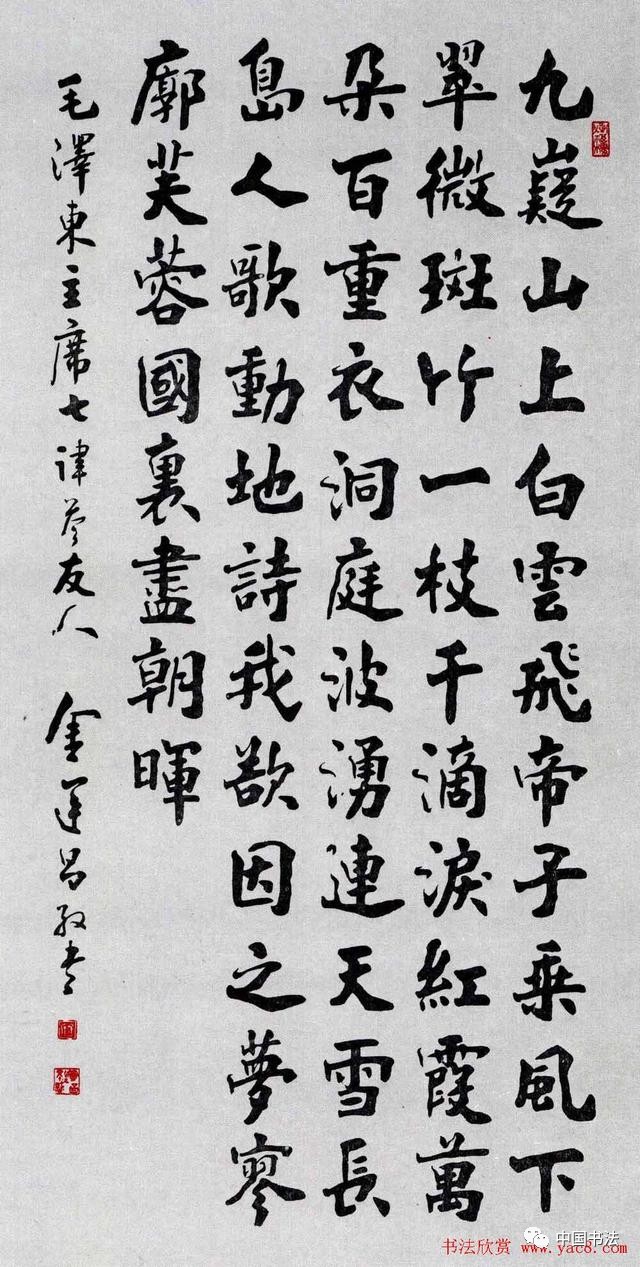 九嶷山上白雲飛帝子乘風下
翠微斑竹一枝千滴淚紅霞萬
朵百重衣洞庭波湧連天雪長
島人歌動地詩我欲因之夢寥
廓芙蓉國裏盡朝暉
毛澤東主席七律答友人 金運昌敬書
中国书法
书法欣赏 www.yac8.com